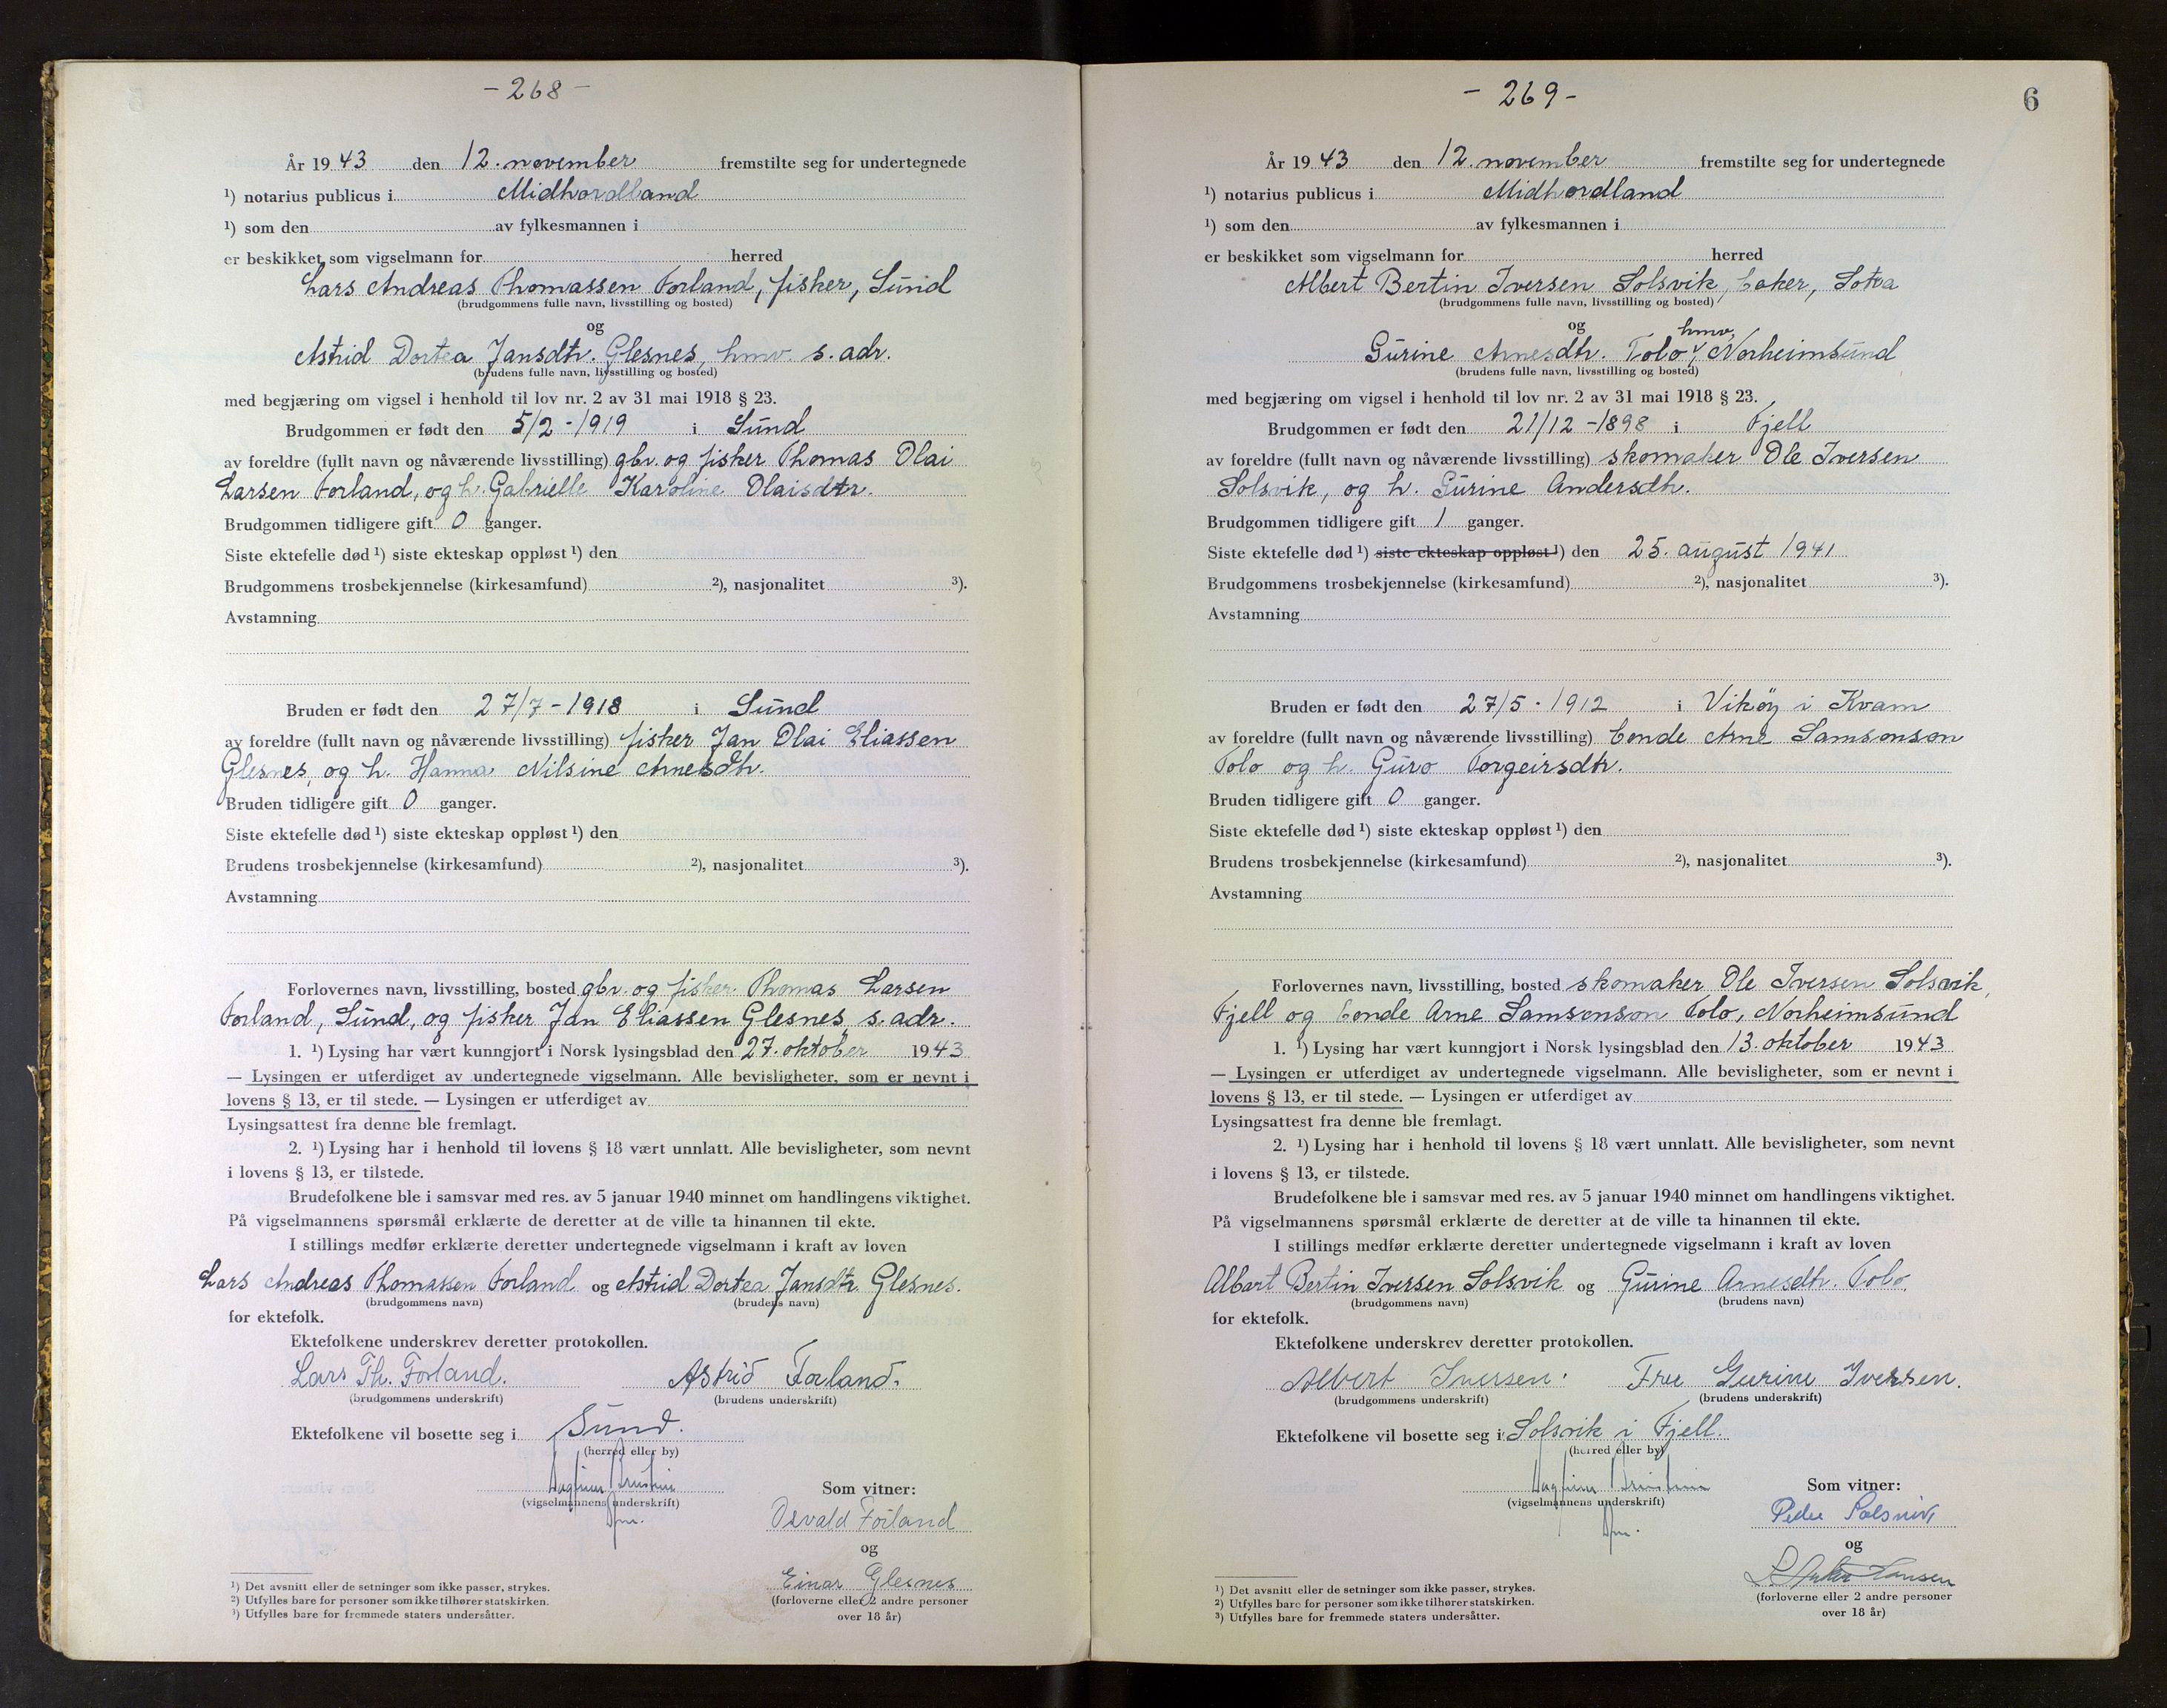 - 268 -
År 1943 den 12. november fremstilte seg for undertegnede
¹) notarius publicus i Midhordland
¹) som den av fylkesmannen i
er beskikket som vigselmann for herred
Lars Andreas Thomassen Forland, fisker, Sund
(brudgommens fulle navn, livsstilling og bosted)
og
Astrid Dortea Jansdtr. Glesnes, hmv. s. adr.
(brudens fulle navn, livsstilling og bosted)
med begjæring om vigsel i henhold til lov nr. 2 av 31 mai 1918 § 23.
Brudgommen er født den 5/2 - 1919 i Sund
av foreldre (fullt navn og nåværende livsstilling) gbr. og fisker Thomas Olai
Larsen Forland, og h. Gabrielle Karoline Olaisdtr.
Brudgommen tidligere gift 0 ganger.
Siste ektefelle død ¹) siste ekteskap oppløst ¹) den
Brudgommens trosbekjennelse (kirkesamfund) ²), nasjonalitet ³).
Avstamning
Bruden er født den 27/7 - 1918 i Sund
av foreldre (fullt navn og nåværende livsstilling) fisker Jan Olai Eliassen
Glesnes, og h. Hanna Nilsine Arnesdtr.
Bruden tidligere gift 0 ganger.
Siste ektefelle død ¹) siste ekteskap oppløst ¹) den
Brudens trosbekjennelse (kirkesamfund) ²), nasjonalitet ³).
Avstamning
Forlovernes navn, livsstilling, bosted gbr. og fisker Thomas Larsen
Forland, Sund, og fisker Jan Eliassen Glesnes, s. adr.
1. ¹) Lysing har vært kunngjort i Norsk lysingsblad den 27. oktober 1943
— Lysingen er utferdiget av undertegnede vigselmann. Alle bevisligheter, som er nevnt i
lovens § 13, er til stede. — Lysingen er utferdiget av
Lysingsattest fra denne ble fremlagt.
2. ¹) Lysing har i henhold til lovens § 18 vært unnlatt. Alle bevisligheter, som nevnt
i lovens § 13, er tilstede.
Brudefolkene ble i samsvar med res. av 5 januar 1940 minnet om handlingens viktighet.
På vigselmannens spørsmål erklærte de deretter at de ville ta hinannen til ekte.
I stillings medfør erklærte deretter undertegnede vigselmann i kraft av loven
Lars Andreas Thomassen Forland og Astrid Dortea Jansdtr Glesnes.
(brudgommens navn) (brudens navn)
for ektefolk.
Ektefolkene underskrev deretter protokollen.
Lars Th. Forland. Astrid Forland.
(brudgommens underskrift) (brudens underskrift)
Ektefolkene vil bosette seg i Sund.
(herred eller by)
(vigselmannens underskrift)
Som vitner:
Osvald Forland
og
Einar Glesnes
(forloverne eller 2 andre personer
over 18 år)
¹) Det avsnitt eller de setninger som ikke passer, strykes.
²) Utfylles bare for personer som ikke tilhører statskirken.
³) Utfylles bare for fremmede staters undersåtter.
- 269 -
6
År 1943 den 12. november fremstilte seg for undertegnede
¹) notarius publicus i Midhordland
¹) som den av fylkesmannen i
er beskikket som vigselmann for herred
Albert Bertin Iversen Solsvik, baker, Sotra
(brudgommens fulle navn, livsstilling og bosted)
og
Gurine Arnesdtr. Tolo, hmv, Norheimsund
(brudens fulle navn, livsstilling og bosted)
med begjæring om vigsel i henhold til lov nr. 2 av 31 mai 1918 § 23.
Brudgommen er født den 21/12 - 1898 i Fjell
av foreldre (fullt navn og nåværende livsstilling) skomaker Ole Iversen
Solsvik, og h. Gurine Andersdtr.
Brudgommen tidligere gift 1 ganger.
Siste ektefelle død ¹) siste ekteskap oppløst ¹) den 25. august 1941
Brudgommens trosbekjennelse (kirkesamfund) ²), nasjonalitet ³).
Avstamning
Bruden er født den 27/5 - 1912 i Vikøy i Kvam
av foreldre (fullt navn og nåværende livsstilling) bonde Arne Samsonson
Tolo og h. Guro Torgeirsdtr.
Bruden tidligere gift 0 ganger.
Siste ektefelle død ¹) siste ekteskap oppløst ¹) den
Brudens trosbekjennelse (kirkesamfund) ²), nasjonalitet ³).
Avstamning
Forlovernes navn, livsstilling, bosted skomaker Ole Iversen Solsvik,
Fjell og bonde Arne Samsonson Tolo, Norheimsund
1. ¹) Lysing har vært kunngjort i Norsk lysingsblad den 13. oktober 1943
— Lysingen er utferdiget av undertegnede vigselmann. Alle bevisligheter, som er nevnt i
lovens § 13, er til stede. — Lysingen er utferdiget av
Lysingsattest fra denne ble fremlagt.
2. ¹) Lysing har i henhold til lovens § 18 vært unnlatt. Alle bevisligheter, som nevnt
i lovens § 13, er tilstede.
Brudefolkene ble i samsvar med res. av 5 januar 1940 minnet om handlingens viktighet.
På vigselmannens spørsmål erklærte de deretter at de ville ta hinannen til ekte.
I stillings medfør erklærte deretter undertegnede vigselmann i kraft av loven
Albert Bertin Iversen Solsvik og Gurine Arnesdtr. Tolo.
(brudgommens navn) (brudens navn)
for ektefolk.
Ektefolkene underskrev deretter protokollen.
Albert Iversen. Fru Gurine Iversen.
(brudgommens underskrift) (brudens underskrift)
Ektefolkene vil bosette seg i Solsvik i Fjell.
(herred eller by)
(vigselmannens underskrift)
Som vitner:
Peder Solsvik
og
Hansen
(forloverne eller 2 andre personer
over 18 år)
¹) Det avsnitt eller de setninger som ikke passer, strykes.
²) Utfylles bare for personer som ikke tilhører statskirken.
³) Utfylles bare for fremmede staters undersåtter.